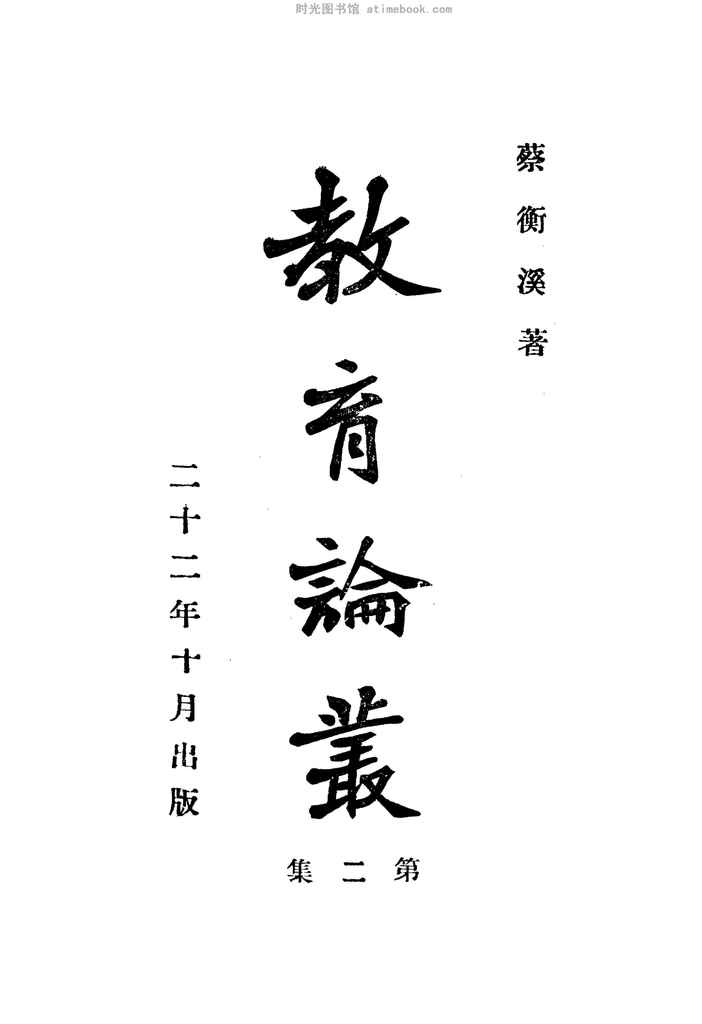 时光图书馆 atimebook.com
蔡衡溪著
教育論叢
第二集
二十二年十月出版